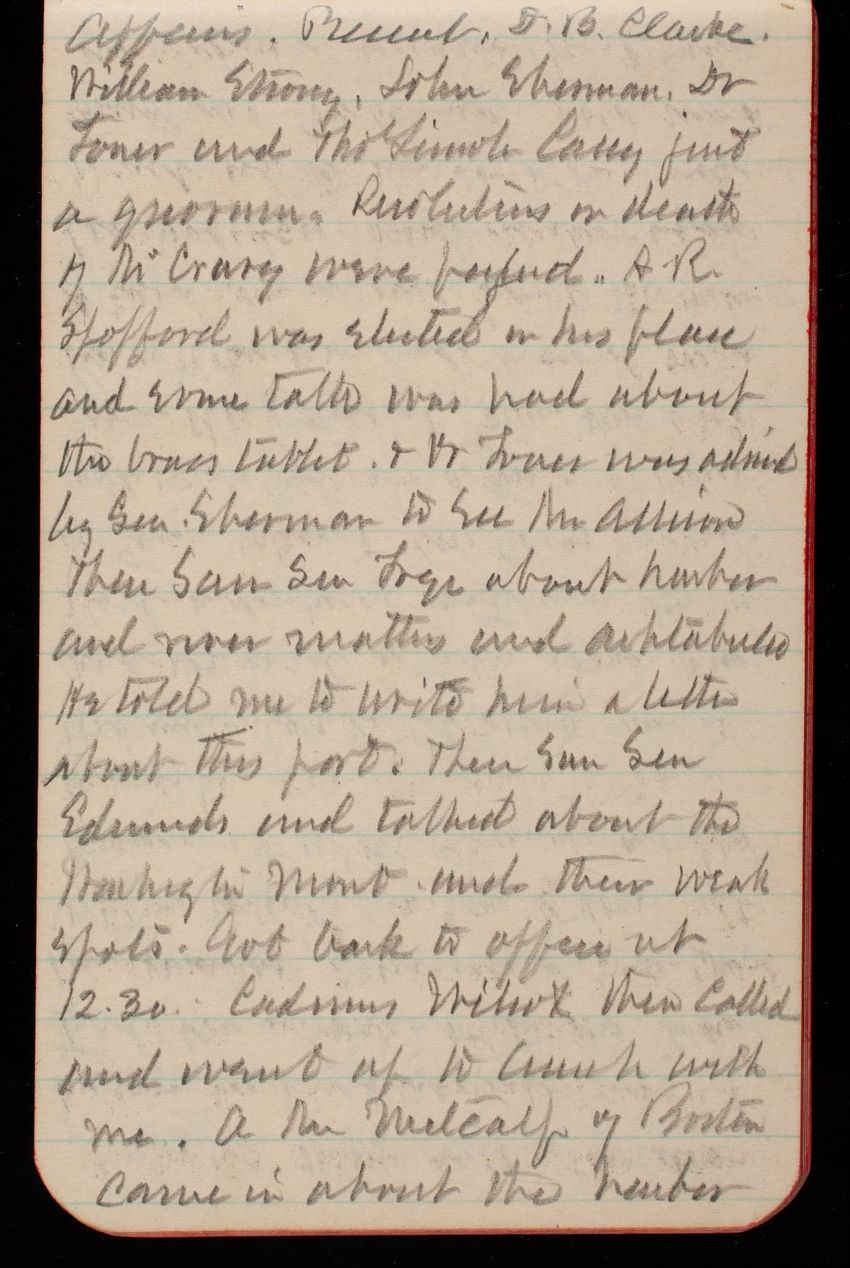 Affairs. Present, D. B. Clarke.
William Strong, John Sherman, Dr
Toner and Thos Lincoln Casey just
a quorum. Resolutions on death
of Mr Crary were passed. A. R.
Spofford was elected in his place
and some talk was had about
the brass tablet. & Dr Toner was advised
by Sen. Sherman to see Mr Allison
Then saw Sen Frye about harbor
and river matters and Ashtabula
He told me to write him a letter
about this port. Then saw Sen
Edmunds and talked about the
Washington Mont and their weak
spots. Got back to office at
12.30. Cadmus Wilcox then called
and went up to lunch with
me. A Mr Metcalf of Boston
came in about the harbor